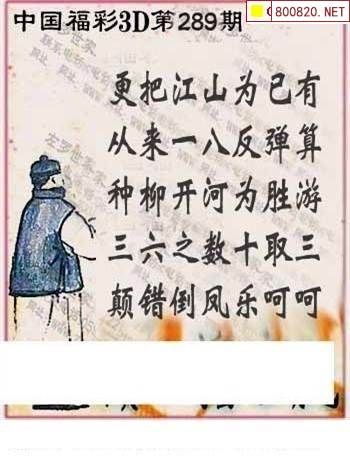 中国福彩3D第289期
800820.NET
更把江山为己有
从来一八反弹算
种柳开河为胜游
三六之数十取三
颠错倒凤乐呵呵